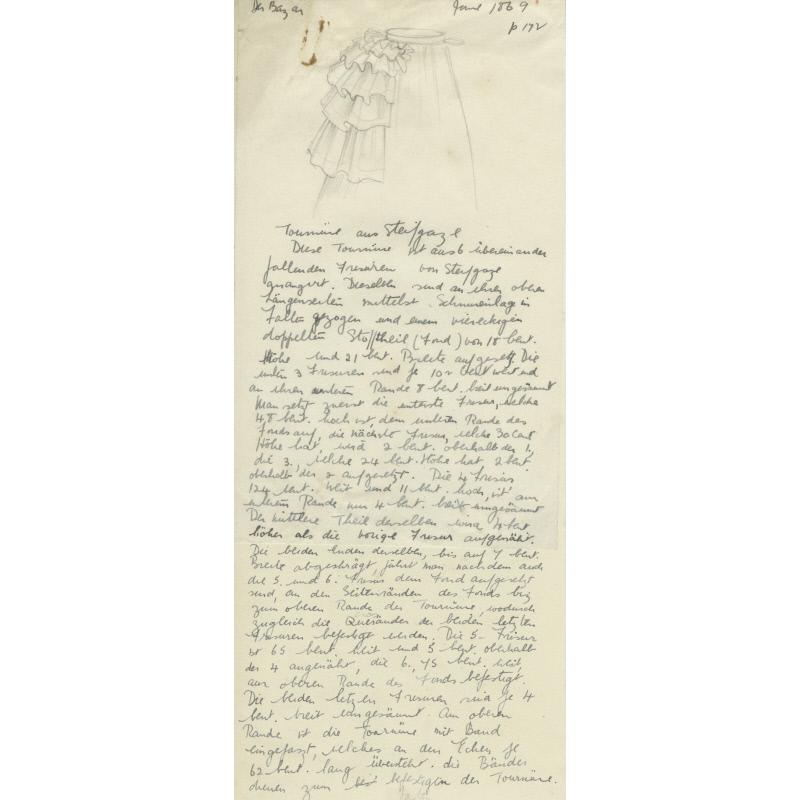 Der Bazar
June 1869
p 172
Tournüre aus Steifgaze
Diese Tournüre ist aus 6 übereinander
fallenden Frisuren von Steifgaze
arrangirt. Dieselben sind an ihren oberen
Längenseiten mittelst Schnureinlage in
Falten gezogen und einem viereckigen
doppelten Stofftheil (Fond) von 18 Cent.
Höhe und 21 Cent. Breite aufgesetzt. Die
ersten 3 Frisuren sind je 102 Cent weit und
an ihren unteren Rande 8 Cent. breit umgesäumt
Man setzt zuerst die unterste Frisur, welche
48 Cent. hoch ist, dem unteren Rande des
Fonds auf, die nächste Frisur, welche 30 Cent
Höhe hat, wird 2 Cent. oberhalb der 1,
die 3., welche 24 Cent. Höhe hat 2 Cent.
oberhalb der 2 aufgesetzt. Die 4 Frisur
124 Cent. weit und 11 Cent. hoch, ist am
unteren Rande nur 4 Cent. breit umgesäumt
Der mittlere Theil derselben wird 4 Cent
höher als die vorige Frisur aufgesetzt.
Die beiden Enden derselben, bis auf 7 Cent.
Breite abgeschrägt, führt man nachdem auch
die 5. und 6. Frisur dem Fond aufgesetzt
sind, an den Seitenrändern des Fonds bis
zum oberen Rande der Tournüre, wodurch
zugleich die Queränder der beiden letzten
Frisuren befestigt werden. Die 5. Frisur
ist 65 Cent. weit und 5 Cent. oberhalb
der 4 angenäht, die 6., 45 Cent. weit,
am oberen Rande des Fonds befestigt.
Die beiden letzten Frisuren sind je 4
Cent. breit umgesäumt. Am oberen
Rande ist die Tournüre mit Band
eingefasst, welches an den Ecken je
62 Cent. lang übersteht. die Bänder
dienen zum befestigen der Tournüre.